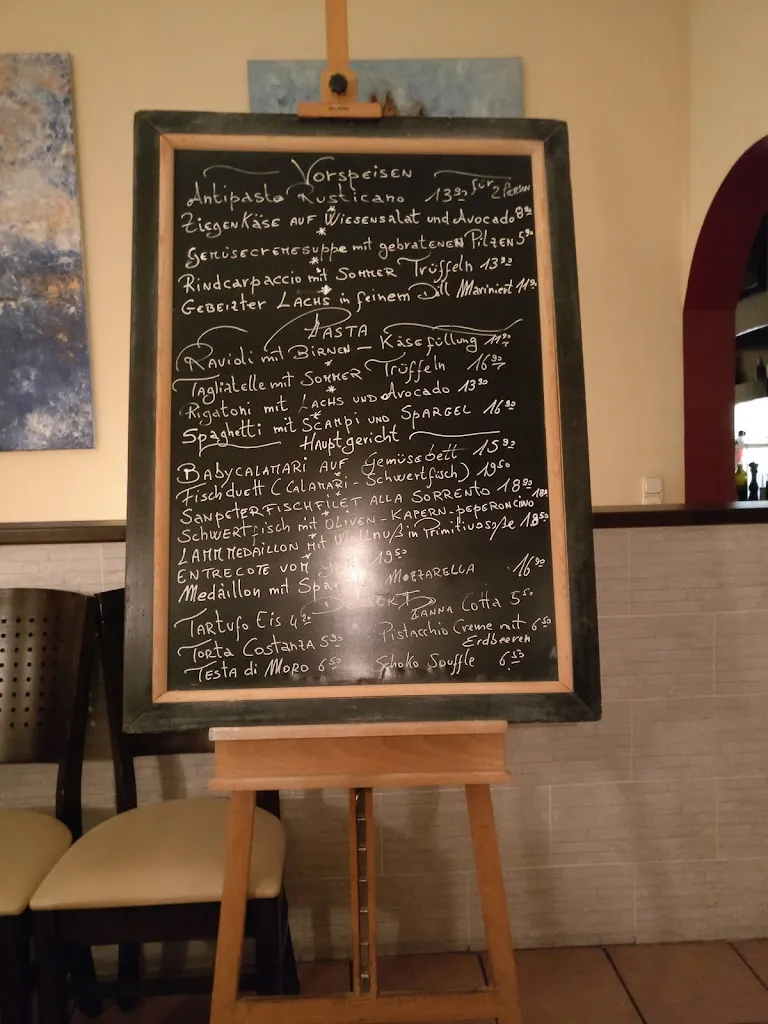 Vorspeisen
Antipasto Rusticano 13,90 für 2 Person
Ziegenkäse auf Wiesensalat und Avocado 8,90
Gemüsecremesuppe mit gebratenen Pilzen 5,90
Rindcarpaccio mit Sommer Trüffeln 13,90
Gebeizter Lachs in feinem Dill Mariniert 11,90
Pasta
Ravioli mit Birnen - Käsefüllung 11,90
Tagliatelle mit Sommer Trüffeln 16,90
Rigatoni mit Lachs und Avocado 13,90
Spaghetti mit Scampi und Spargel 16,90
Hauptgericht
Babycalamari auf Gemüsebett 15,90
Fischduett (Calamari - Schwertfisch) 19,50
Sanpeterfischfilet alla Sorrento 18,90
Schwertfisch mit Oliven - Kapern - peperoncino 18,90
Lammmedaillon mit Wallnuß in Primitivosoße 18,50
Entrecote vom 19,50
Medaillon mit Mozzarella 16,90
Tartufo Eis 4,20 Panna Cotta 5,50
Torta Costanza 5,90 Pistacchio Creme mit Erdbeeren 6,50
Testa di Moro 6,50 Schoko Souffle 6,50